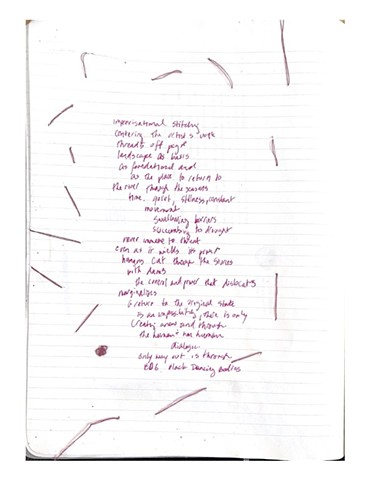 improvisational stitching
centering the artist's work
threads off page
landscape as basis
as foundational and
as the place to return to
the river through the seasons
time. quiet, stillness, constant
movement
swallowing borders
succumbing to drought
never unaware to threat
even as it wields its power
humans cut through the shores
with dams
the control and power that dislocates
marginalizes
a return to the original state
is an impossibility, there is only
creating anew and through
the human + non human
dialogic
only way out is through
Black Dancing Bodies